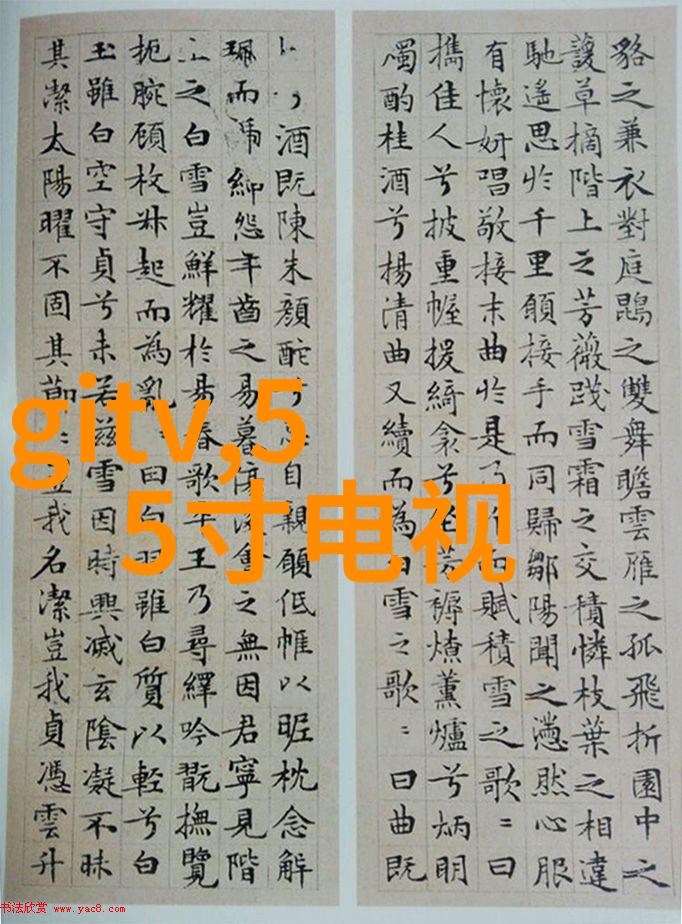 貉之兼衣對庭鵾之雙舞瞻雲雁之孤飛折園中之
萲草摘階上之芳薇踐雪霜之交積憐枝葉之相違
馳遙思於千里願接手而同歸鄒陽聞之懣然心服
有懷妍唱敬接末曲於是乃作而賦積雪之歌〻曰
攜佳人兮披重幄援綺衾兮坐芳褥燎薰爐兮炳明
燭酌桂酒兮揚清曲又續而為白雪之歌〻曰曲既
酒既陳朱顏酡兮思自親願低帷以昵枕念解
珮而褫紳怨年齒之易暮傷後會之無因君寧見階
上之白雪豈鮮耀於昜春歌卒王乃尋繹吟翫撫覽
扼腕顧枚叔起而為亂〻曰白羽雖白質以輕兮白
玉雖白空守貞兮未若茲雪因時興滅玄陰凝不昧
其潔太陽曜不固其節〻豈我名潔豈我貞憑雲升
gitv,5
5寸电视
书法欣赏 www.yac8.com